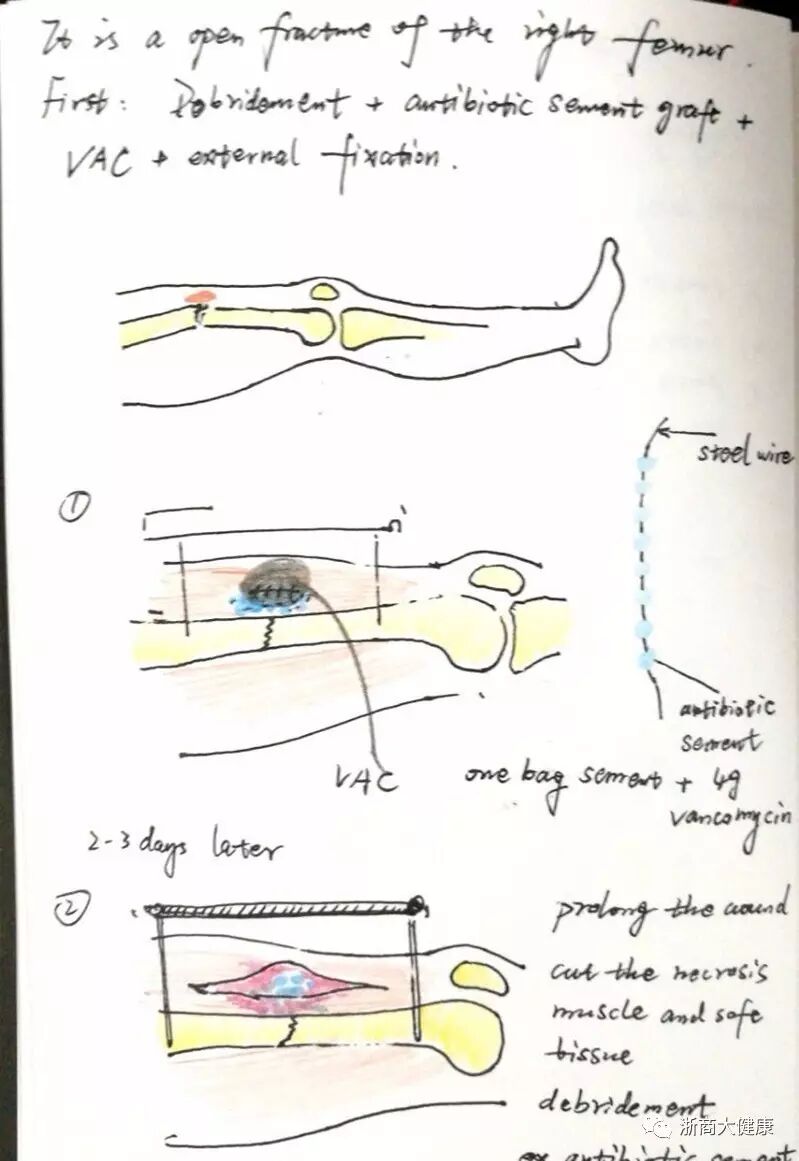 It is a open fracture of the right femur.
First: Debridement + antibiotic sement graft +
VAC + external fixation.
steel wire
①
antibiotic
sement
VAC
one bag sement + 4g
vancomycin
2-3 days later
②
prolong the wound
cut the necrosis
muscle and sofe
tissue
debridement
antibiotic sement
浙商大健康